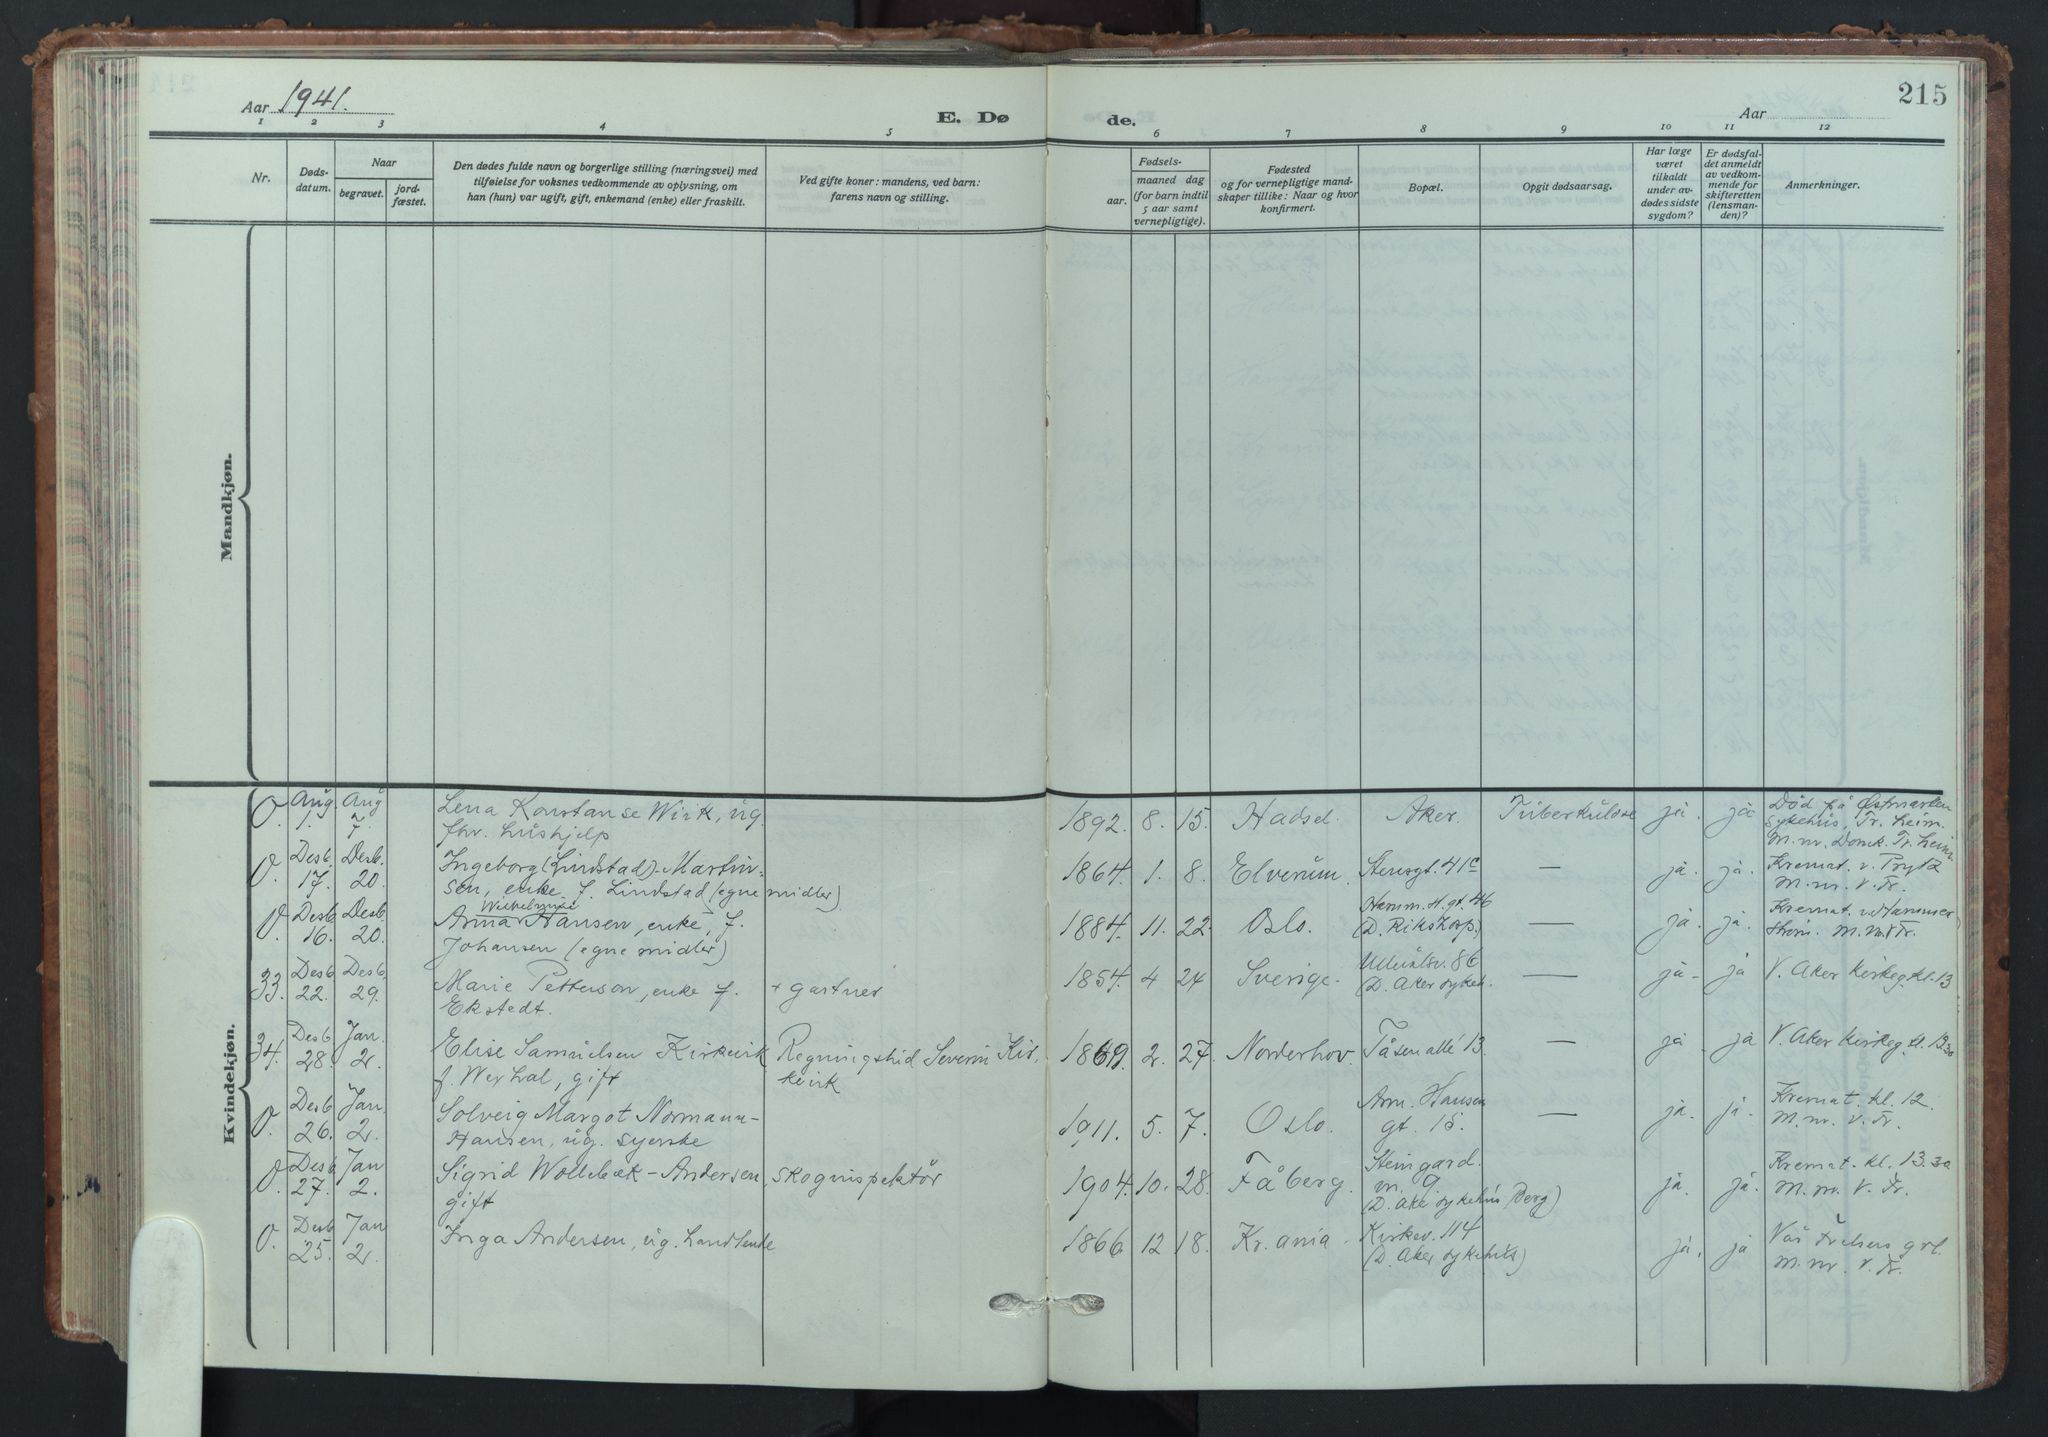 Aar 1941.
E. Dø
de.
Aar
215
1 2 3 4 5 6 7 8 9 10 11 12
Nr.
Døds-
datum.
Naar
begravet.
jord-
fæstet.
Den dødes fulde navn og borgerlige stilling (næringsvei) med
tilføielse for voksnes vedkommende av oplysning, om
han (hun) var ugift, gift, enkemand (enke) eller fraskilt.
Ved gifte koner: mandens, ved barn:
farens navn og stilling.
Fødsels-
aar.
maaned dag
(for barn indtil
5 aar samt
vernepligtige).
Fødested
og for vernepligtige mand-
skaper tillike: Naar og hvor
konfirmert.
Bopæl.
Opgit dødsaarsag.
Har læge
været
tilkaldt
under av-
dødes sidste
sygdom?
Er dødsfal-
det anmeldt
av vedkom-
mende for
skifteretten
(lensman-
den)?
Anmerkninger.
Mandkjøn.
Kvindekjøn.
0. Aug. 1. Aug 7. Lena Konstanse Wiik, ug.
fhv. hushjelp
1892. 8. 15. Hadsel. Aker. Tuberkulose ja. ja Død på Østmarken
sykehus, Tr.heim.
M.m. Domk. Tr.heim
0. Desb. 17. Desb. 20. Ingeborg (Lindstad)-Martin-
sen, enke f. Lindstad (egne midler)
1864. 1. 8. Elverum. Stensgt. 41c — ja. ja. Kremat. v. Prytz
M.m. V. Fr.
0. Desb 16. Desb 20. Anna Wilhelmine Hansen, enke, f.
Johansen (egne midler)
1884. 11. 22. Oslo. Hamm.st.gt. 46
(D. Rikshosp.) — ja. ja. Kremat. v. Hammer
strøm. M.m. V. Fr.
33. Desb 22. Desb. 29. Marie Petterson, enke f.
Ekstedt.
+ gartner
1854. 4 24 Sverige. Ullevålsv. 86
(D. Aker sykeh. — ja- ja V. Aker kirkeg. kl. 13
34. Desb 28. Jan. 2. Elise Samuelsen Kirkevik
f. Werhal, gift
Regningsbud Severin Kir-
kevik
1869. 2. 27. Norderhov. Tåsen allé 13. — ja ja V. Aker kirkeg. kl. 13.30
0. Desb 26. Jan 2. Solveig Margot Normann-
Hansen, ug. syerske
1911. 5. 7. Oslo. Arn. Hansen
gt. 15. — ja. ja. Kremat. kl. 12.
M.m. V. Fr.
0. Desb. 27. Jan 2. Sigrid Wollebæk-Andersen,
gift
skoginspektør
1904. 10. 28. Fåberg. Steingard.
v. 9
(D. Aker sykehus Berg) ja. ja. Kremat. kl. 13.30
M.m. V. Fr.
0. Desb 25. Jan 2. Inga Andersen, ug.
1866 12 18. Kr.ania. Kirkev. 114
(D. Aker sykehus) ja. ja Vår Frelsers grl.
M.m. V. Fr.